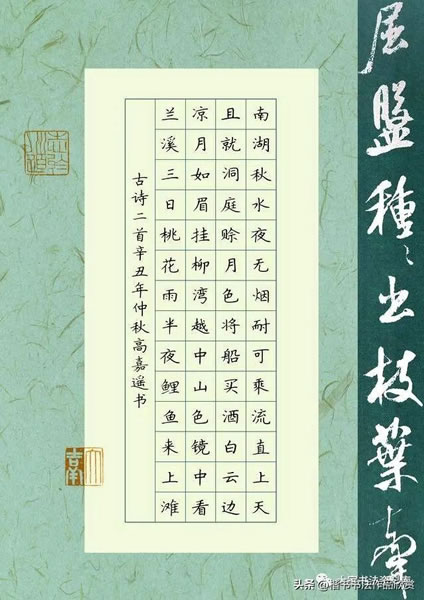 盤種出枝葉
南湖秋水夜无烟耐可乘流直上天
且就洞庭赊月色将船买酒白云边
凉月如眉挂柳湾越中山色镜中看
兰溪三日桃花雨半夜鲤鱼来上滩
古诗二首辛丑年仲秋高嘉遥书
头条 @楷书书法作品欣赏